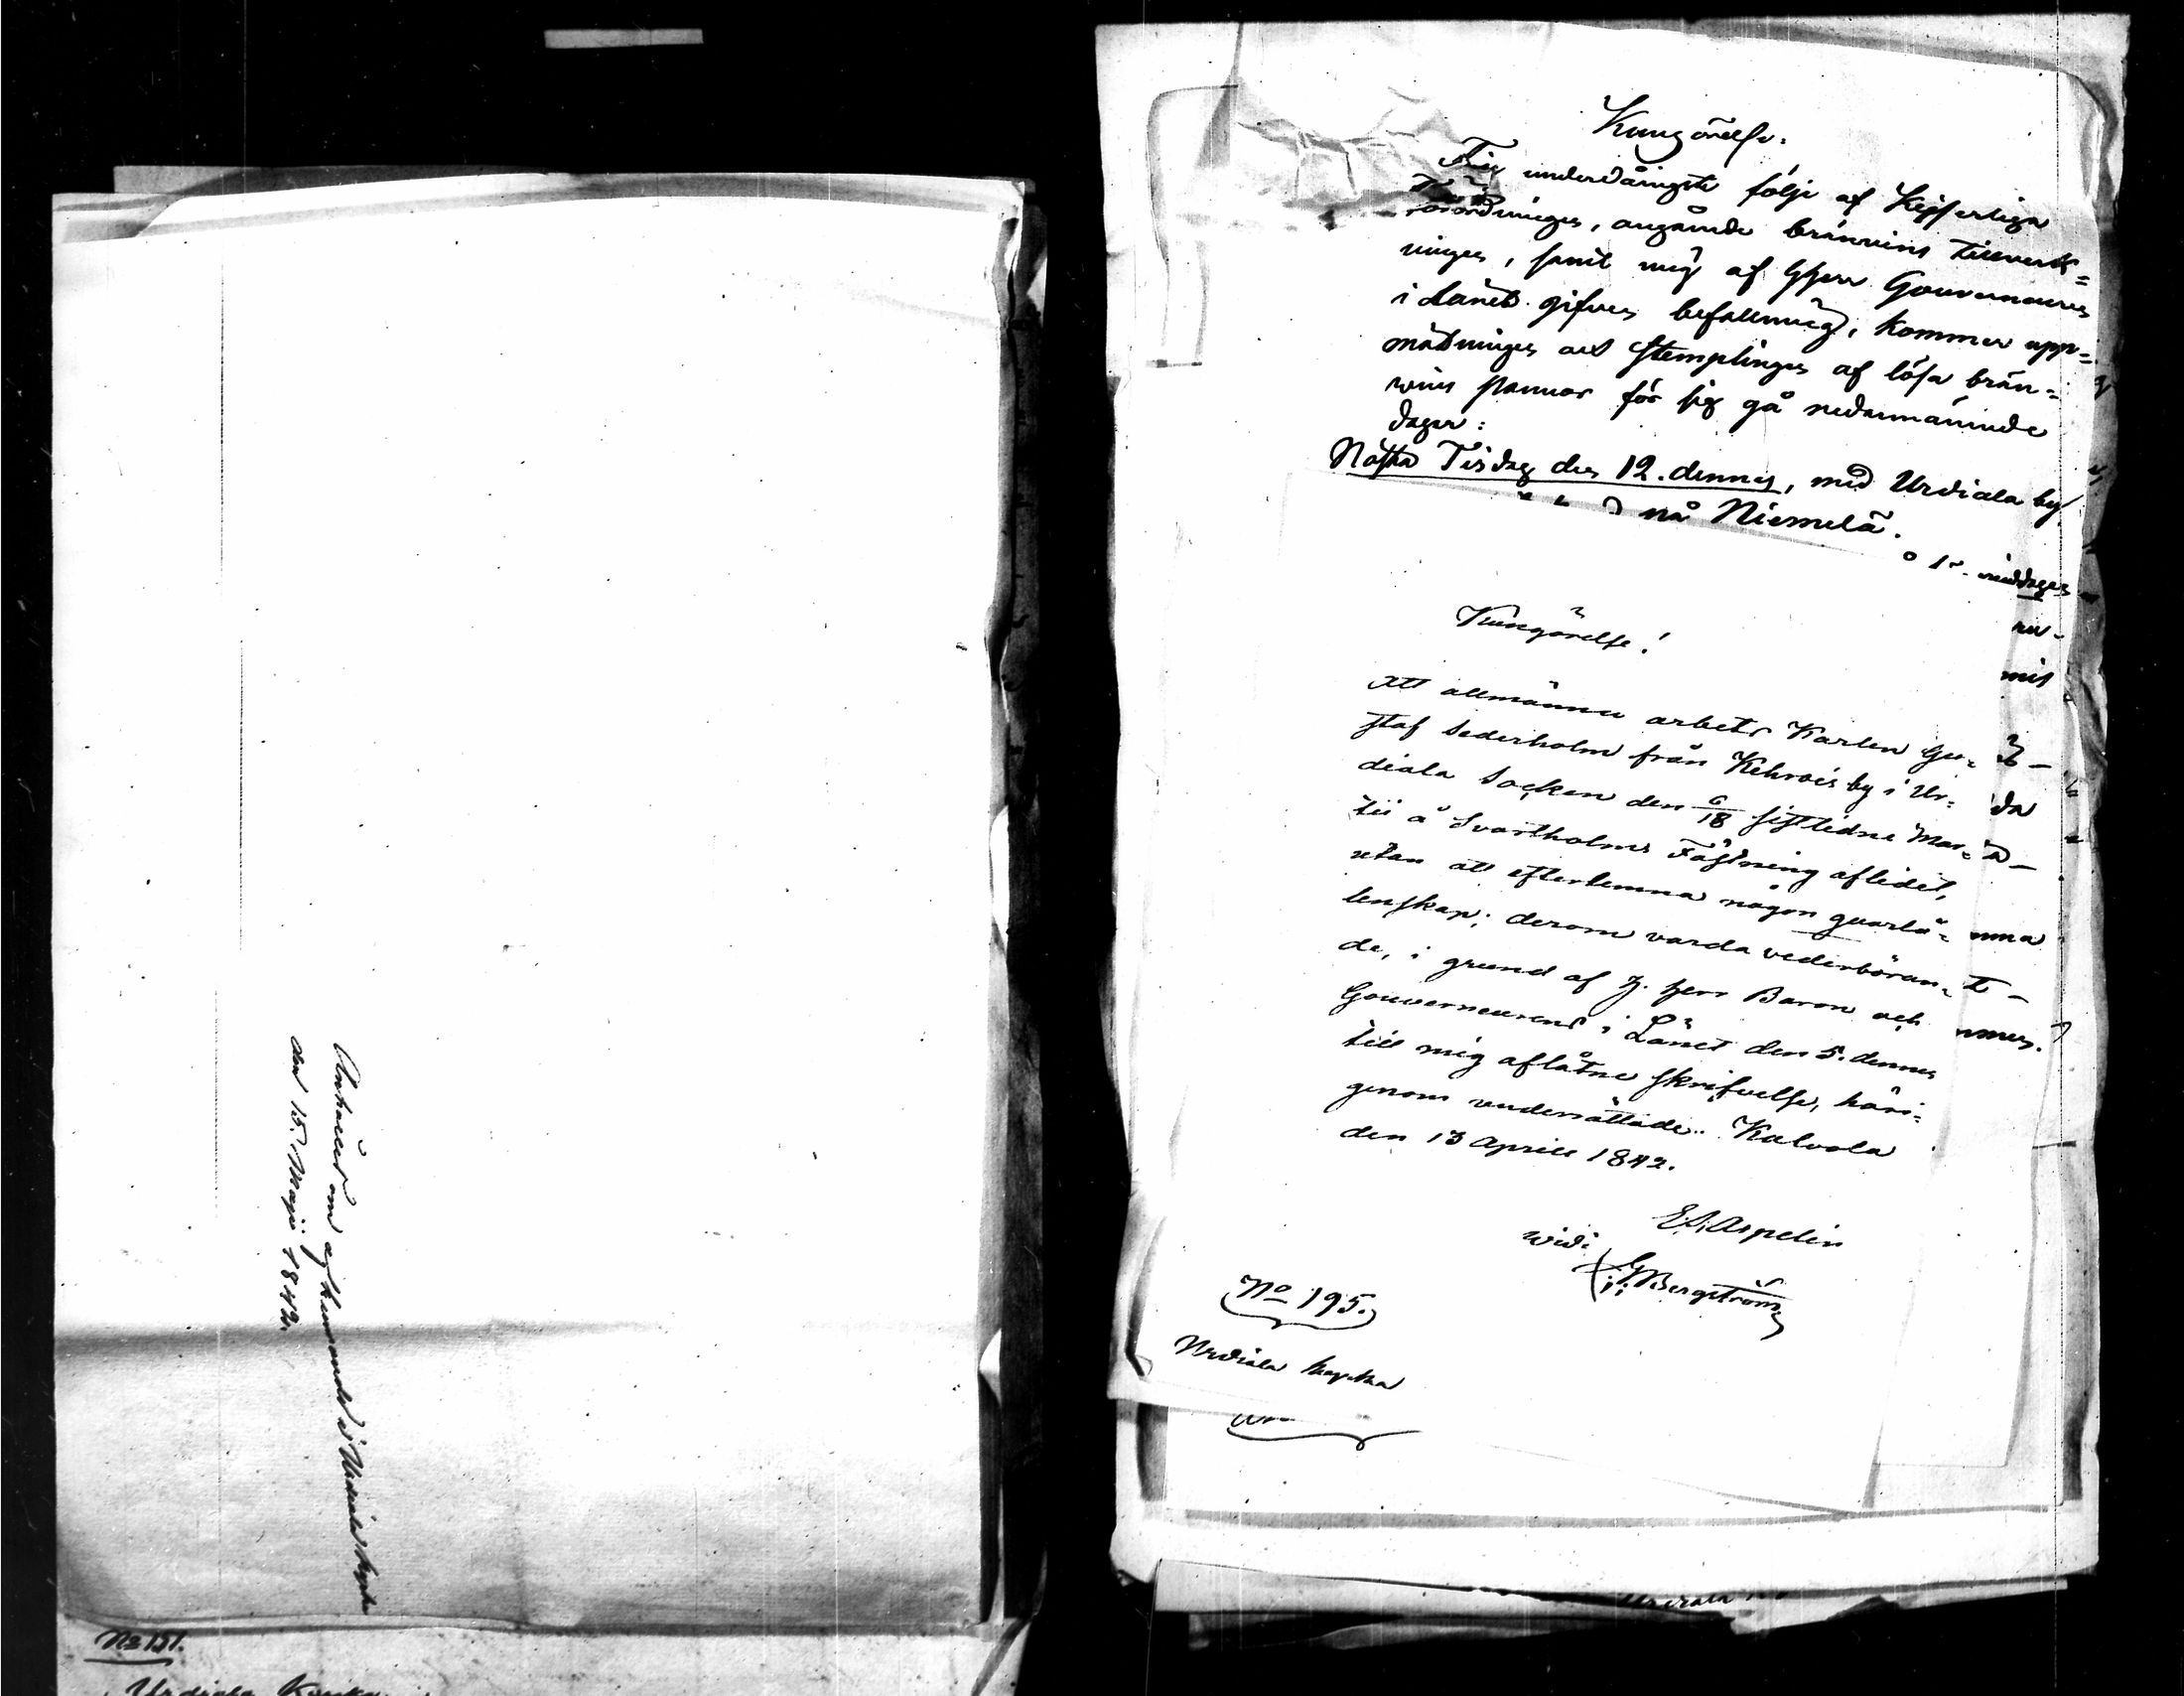 den 15. Maji 1842.
No 151.
Urdiala Kyrka
Kungörelse.
Till underdånigste följe af Kejserliga
Förordningen, angående bränvins tillverk=
ningen, samt mig af Herr Gouverneuren
i Länet gifven befallning, kommer upp=
mätningen och stemplingen af lösa brän=
vins pannor för sig gå nedannämnde
dagar:
Nästa Tisdag den 12. dennes, med Urdiala by
på Niemelä.
middagen
Kungörelse!
Att allmänna arbets Karlen Gu=
staf Sederholm från Kehrois by i Ur=
diala Socken den 6/18 sistledne Mar=
tii å Svartholms Fästning aflidet,
utan att efterlemna någon qvarlå=
tenskap; derom varda vederböran=
de, i grund af H. Herr Baron och
Gouverneurens i Länet den 5. dennes
till mig aflåtne skrifvelse, häri=
genom underrättade. Kalvola
den 13 Aprill 1842.
E. A. Aspelin
widi
G Bergström
No 195.
Urdiala kapella